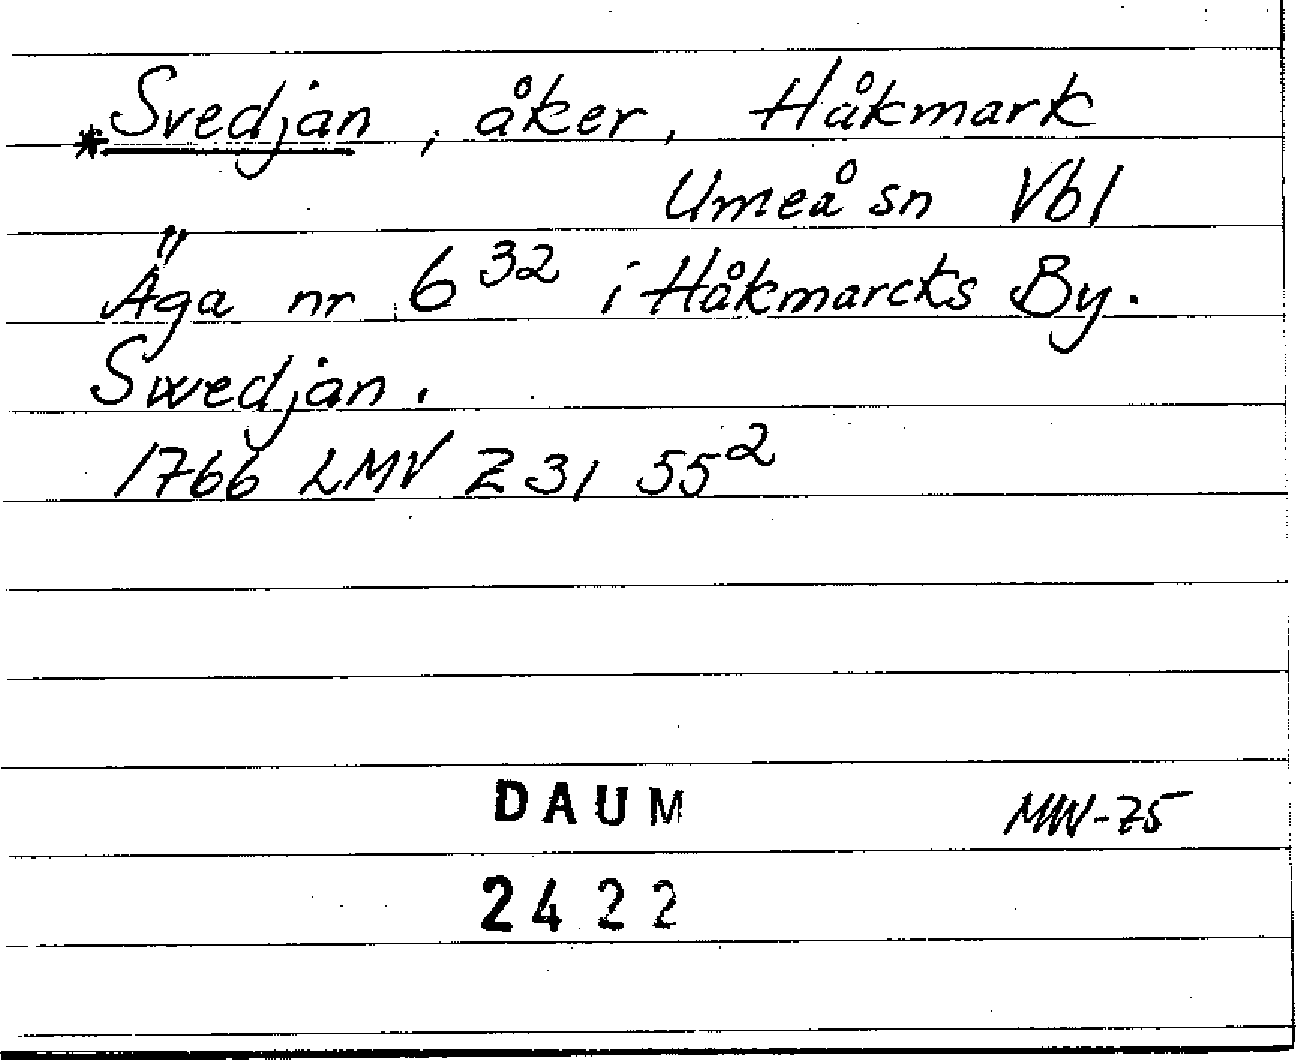 *Svedjan, åker, Håkmark
Umeå sn Vbl
Äga nr 6³² i Håkmarcks By.
Swedjan.
1766 LMV Z31 55²
DAUM
MW-75
2422